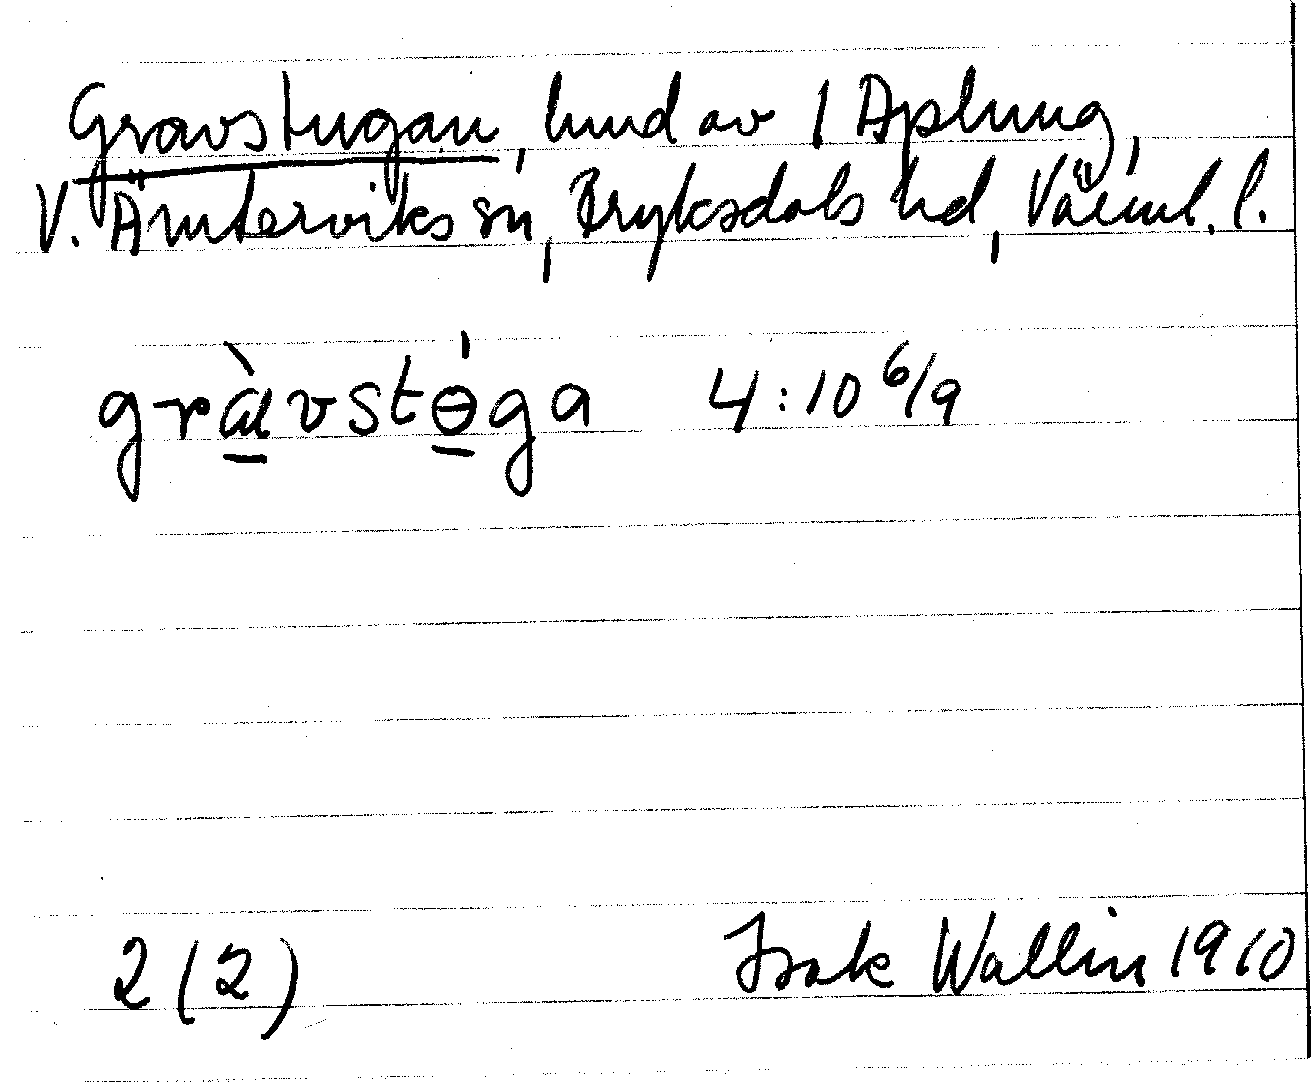 Gravstugan, hmd av 1 Aplung,
V. Ämterviks sn, Fryksdals hd, Värml. l.
gràvstɵ́ga 4:10 6/9
2 (2) Isak Wallin 1910